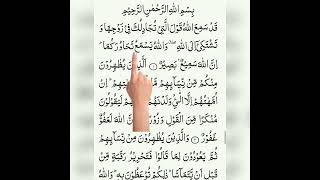 بِسْمِ اللهِ الرَّحْمٰنِ الرَّحِيْمِ
قَدْ سَمِعَ اللهُ قَوْلَ الَّتِيْ تُجَادِلُكَ فِيْ زَوْجِهَا وَ
تَشْتَكِيْٓ اِلَى اللهِ ۖ وَاللهُ يَسْمَعُ تَحَاوُرَكُمَا ؕ
اِنَّ اللهَ سَمِيْعٌۢ بَصِيْرٌ ○ اَلَّذِيْنَ يُظٰهِرُوْنَ
مِنْكُمْ مِّنْ نِّسَآئِهِمْ اِنْ
اُمَّهٰتُهُمْ اِلَّا الّٰٓـِٔيْ لَيَقُوْلُوْنَ
مُنْكَرًا مِّنَ الْقَوْلِ وَزُوْرًا اللهَ لَعَفُوٌّ
غَفُوْرٌ ○ وَالَّذِيْنَ يُظٰهِرُوْنَ مِنْ نِّسَآئِهِمْ
ثُمَّ يَعُوْدُوْنَ لِمَا قَالُوْا فَتَحْرِيْرُ رَقَبَةٍ مِّنْ
قَبْلِ اَنْ يَّتَمَآسَّا ؕ ذٰلِكُمْ تُوْعَظُوْنَ بِهٖ ؕ وَاللهُ